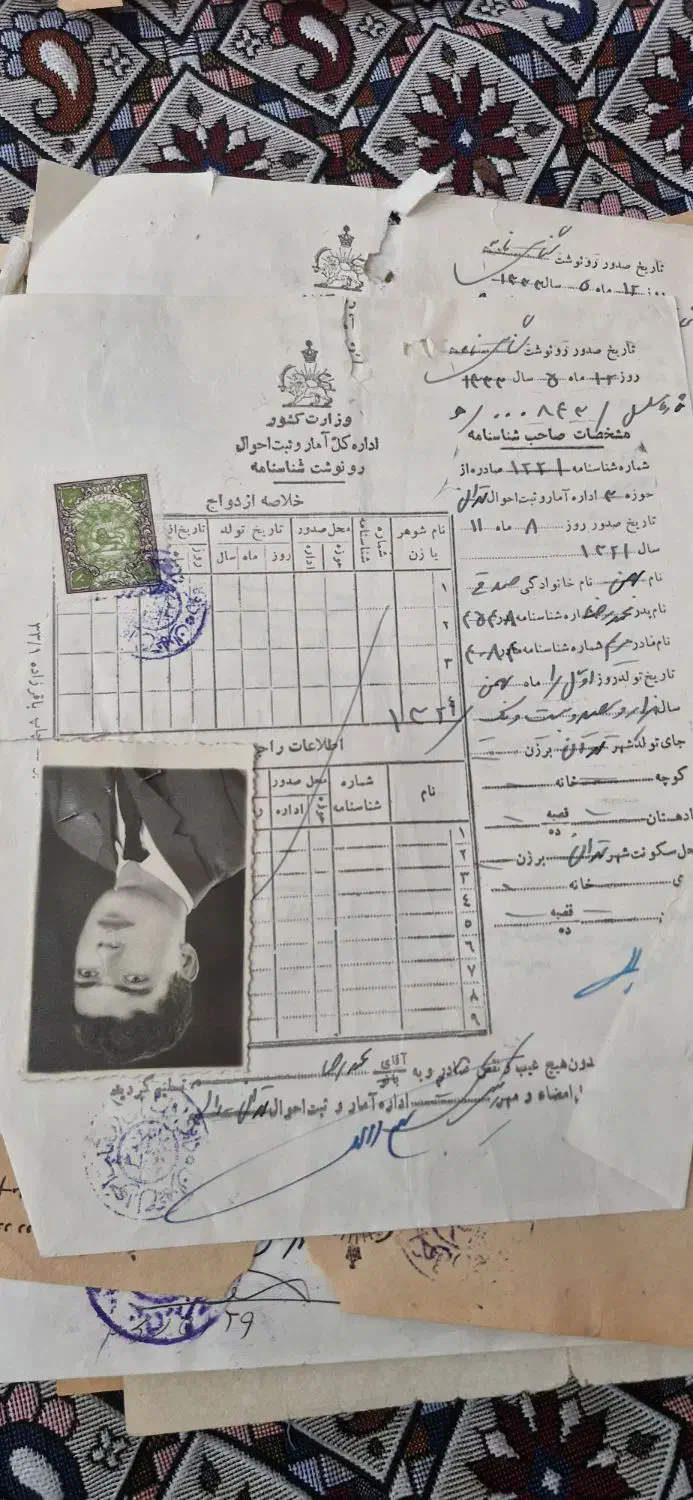 تاریخ صدور رونوشت
روز ۱۲ ماه ۵ سال ۱۳۳۳
تاریخ صدور رونوشت
روز ۱۲ ماه ۵ سال ۱۳۳۳
وزارت کشور
اداره کل آمار و ثبت احوال
رونوشت شناسنامه
مشخصات صاحب شناسنامه
شماره شناسنامه ۱۲۲۱ صادره از
حوزه ۳ اداره آمار و ثبت احوال تهران
تاریخ صدور روز ۸ ماه ۱۱
سال ۱۳۲۱
نام بهمن نام خانوادگی
نام پدر محمدرضا شماره شناسنامه
نام مادر مریم شماره شناسنامه
تاریخ تولد روز اول ماه بهمن
سال هزار و سیصد و بیست و یک
جای تولد شهر تهران برزن
کوچه خانه
دهستان قصبه ده
محل سکونت شهر تهران برزن
خانه
قصبه ده
خلاصه ازدواج
نام شوهر یا زن
شماره شناسنامه
محل صدور
حوزه
اداره
تاریخ تولد
روز
ماه
سال
روز
۱
۲
۳
اطلاعات
نام
شماره شناسنامه
محل صدور
حوزه
اداره
۱
۲
۳
۴
۵
۶
۷
۸
۹
بدون هیچ عیب و نقص صادر و به آقای بانو محمدرضا تسلیم گردید
امضاء و مهر اداره آمار و ثبت احوال تهران
چاپ باقرزاده ۳۳/۱
۲۹